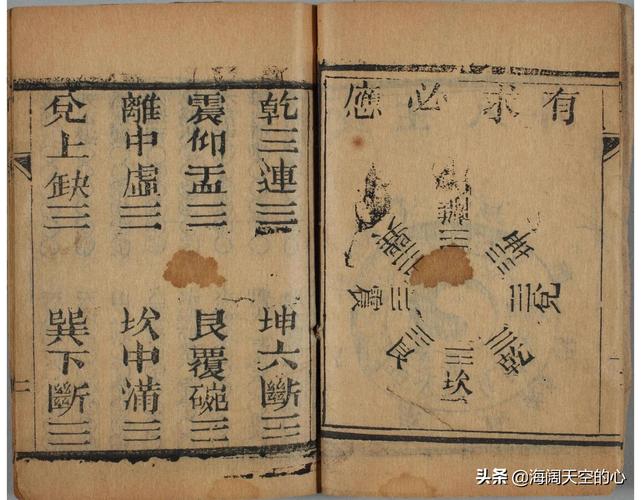 有求必應
離
坤
兌
乾
坎
艮
震
巽
乾三連☰ 坤六斷☷
震仰盂☳ 艮覆碗☶
離中虛☲ 坎中滿☵
兌上缺☱ 巽下斷☴
头条 @海阔天空的心